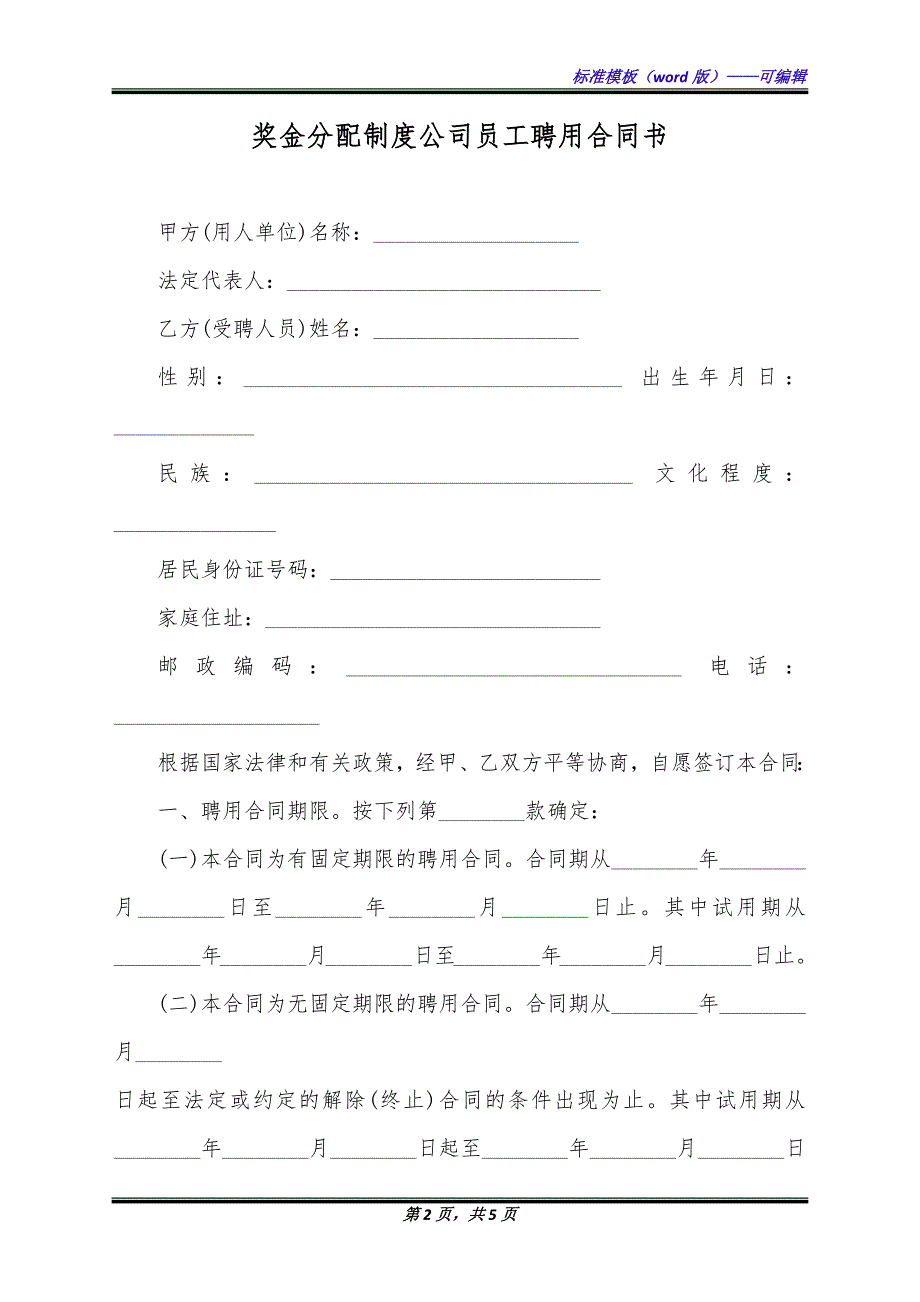 标准模板（word 版）——可编辑
奖金分配制度公司员工聘用合同书
甲方(用人单位)名称：___________________
法定代表人：_____________________________
乙方(受聘人员)姓名：___________________
性别：___________________________________ 出生年月日：
_____________
民族：___________________________________ 文化程度：
_______________
居民身份证号码：_________________________
家庭住址：_______________________________
邮政编码：_______________________________ 电话：
___________________
根据国家法律和有关政策，经甲、乙双方平等协商，自愿签订本合同：
一、聘用合同期限。按下列第________款确定：
(一)本合同为有固定期限的聘用合同。合同期从________年________
月________日至________年________月________日止。其中试用期从
________年________月________日至________年________月________日止。
(二)本合同为无固定期限的聘用合同。合同期从________年________
月________
日起至法定或约定的解除(终止)合同的条件出现为止。其中试用期从
________年________月________日起至________年________月________日
第 2 页，共 5 页